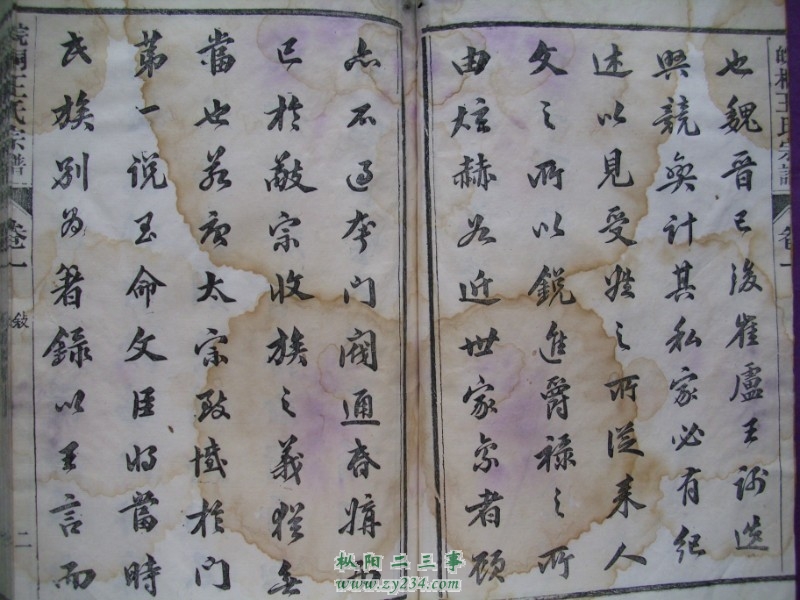 皖桐王氏宗譜 卷一
也魏晉已後崔盧王謝迭
興競爽計其私家必有紀
述以見受姓之所從來人
文之所以銳進爵祿之所
由炫赫若近世家乘者顧
亦不過夸門閥通昏媾而
已於敬宗收族之義猶無
當也若唐太宗致憾於門
第一說至命文臣將當時
氏族別為著錄以王言而
皖桐王氏宗譜 卷一 敍 二
枞阳二三事
www.zy234.com